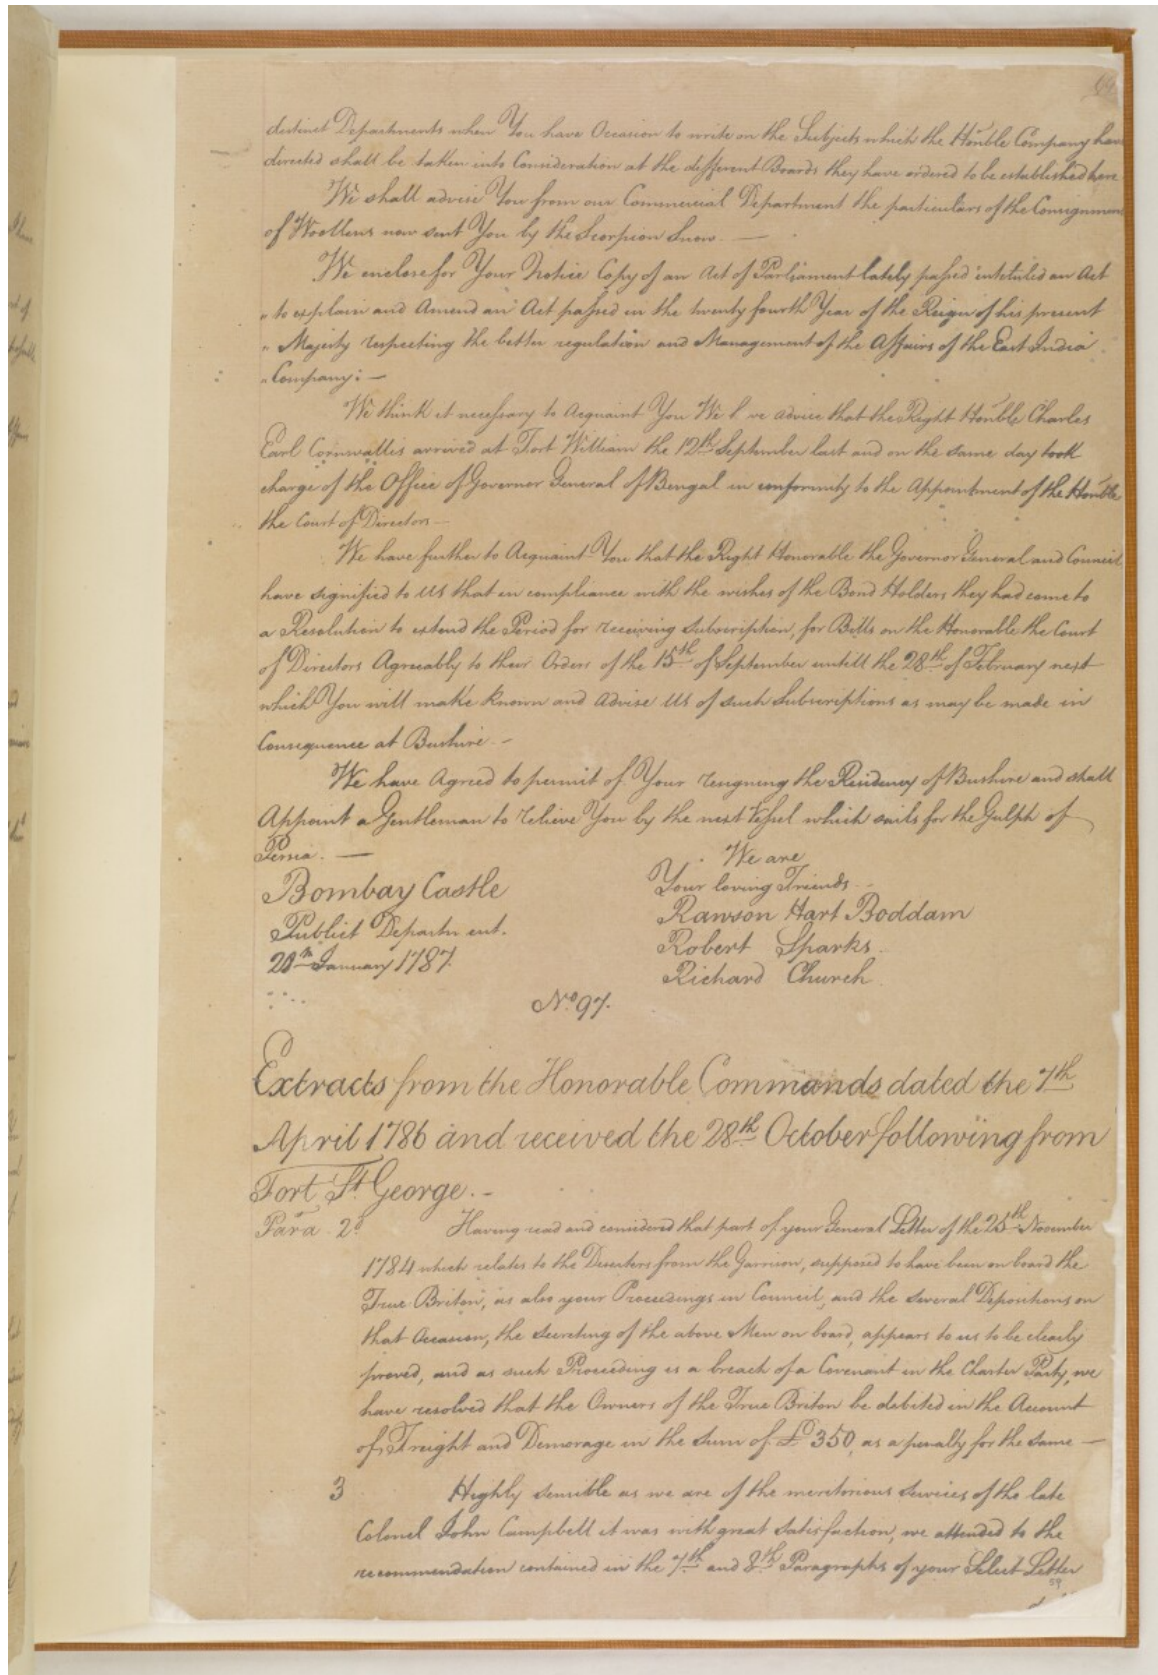 distinct Departments when You have Occasion to write on the Subjects which the Honble Company have
directed shall be taken into Consideration at the different Boards they have ordered to be established here
We shall advise You from our Commercial Department the particulars of the Consignment
of Woollens now sent You by the Scorpion Snow. —
We enclose for Your Notice Copy of an Act of Parliament lately passed intituled an Act
" to explain and Amend an Act passed in the twenty fourth Year of the Reign of his present
" Majesty respecting the better regulation and Management of the Affairs of the East India
" Company: —
We think it necessary to Acquaint You We h ve advice that the Right Honble Charles
Earl Cornwallis arrived at Fort William the 12th September last and on the same day took
charge of the Office of Governor General of Bengal in conformity to the Appointment of the Honble
the Court of Directors —
We have further to Acquaint You that the Right Honorable the Governor General and Council
have signified to us that in compliance with the wishes of the Bond Holders they had come to
a Resolution to extend the Period for receiving Subscription, for Bills on the Honorable the Court
of Directors Agreeably to their Orders of the 15th of September untill the 28th of February next
which You will make known and advise us of such Subscriptions as may be made in
Consequence at Bushire. –
We have Agreed to permit of Your resigning the Residency of Bushire and shall
Appoint a Gentleman to relieve You by the next Vessel which sails for the Gulph of
Persia. —
We are
Your loving Friends
Bombay Castle
Rawson Hart Boddam
Publick Departm ent.
Robert Sparks
20th January 1787.
Richard Church
No. 97.
Extracts from the Honorable Commands dated the 7th
April 1786 and received the 28th October following from
Fort St. George. –
Para 2d Having read and considered that part of your General Letter of the 25th November
1784 which relates to the Deserters from the Garrison, supposed to have been on board the
True Briton, as also your Proceedings in Council, and the several Depositions on
that Occasion, the secreting of the above Men on board, appears to us to be clearly
proved, and as such Proceeding is a breach of a Covenant in the Charter Party, we
have resolved that the Owners of the True Briton be debited in the Account
of Freight and Demorage in the sum of £350, as a penalty for the same —
3 Highly sensible as we are of the meritorious services of the late
Colonel John Campbell it was with great satisfaction, we attended to the
recommendation contained in the 7th and 8th Paragraphs of your Select Letter
59